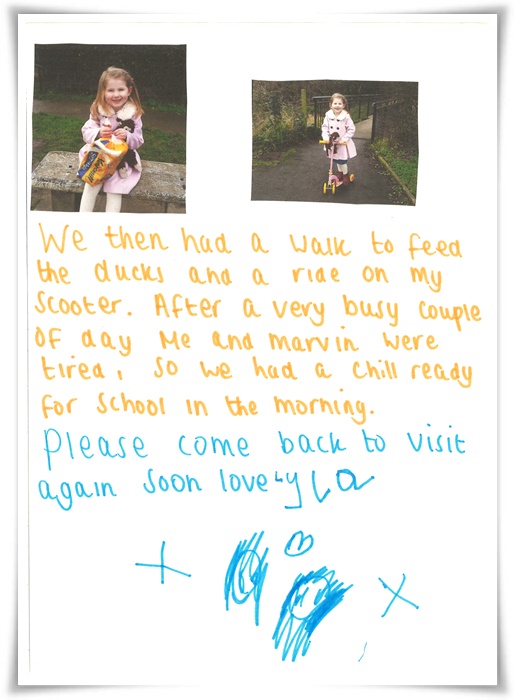 We then had a walk to feed
the ducks and a ride on my
Scooter. After a very busy couple
of day Me and marvin were
tired, So we had a chill ready
for School in the morning.
Please come back to visit
again soon love